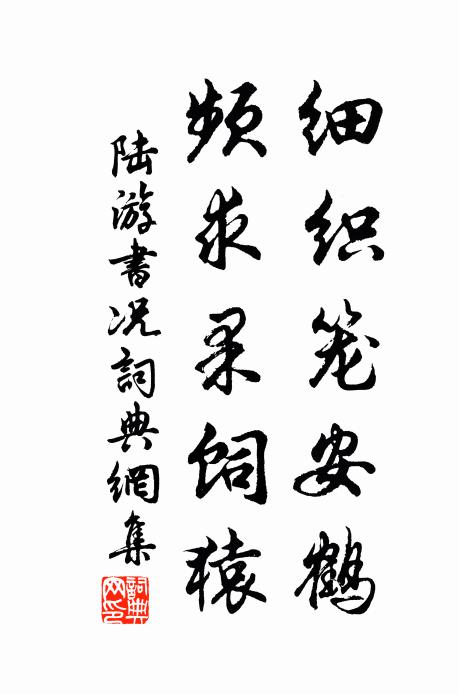 细织笼安鹤
频求果饲猿
陆游書况詞典網集
詞典网印